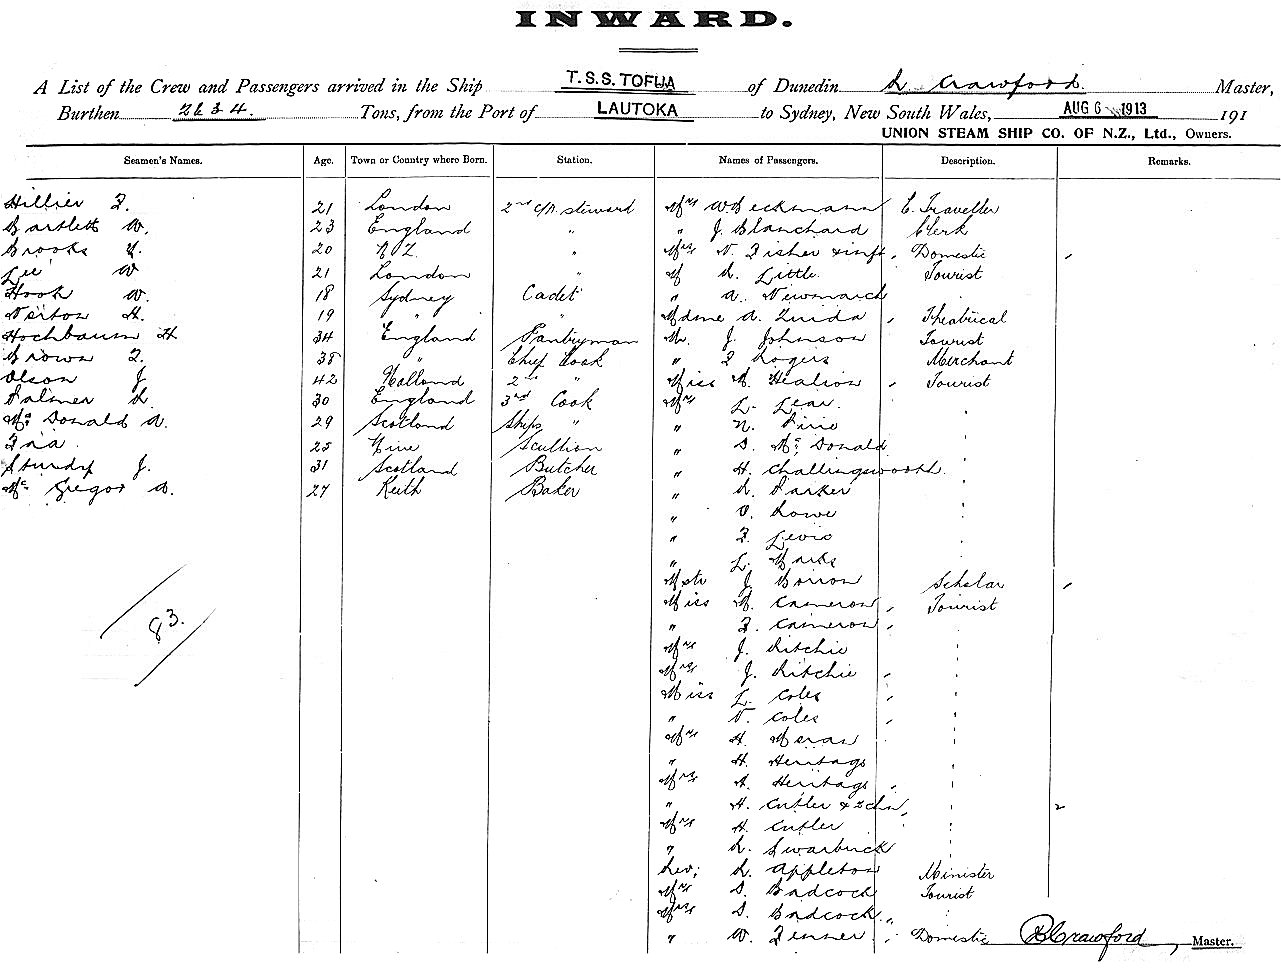 INWARD.
A List of the Crew and Passengers arrived in the Ship T.S.S. TOFUA of Dunedin Crawford. Master,
Burthen 2634. Tons, from the Port of LAUTOKA to Sydney, New South Wales, AUG 6 1913 191
UNION STEAM SHIP CO. OF N.Z., Ltd., Owners.
Seamen's Names. Age. Town or Country where Born. Station. Names of Passengers. Description. Remarks.
Hillier F. 21 London 2nd c/n steward Mr W Beckmann C. Traveller
Bartlett W. 23 England " " J. Blanchard Clerk
Brooks 20 NZ. " Mrs N. Fisher & inft, Domestic
Lee W 21 London " M L. Little. Tourist
Hook W. 18 Sydney Cadet " A. Newmarch
Norton H. 19 " " Mdme A. Zinida Theatrical
Hochbaum H 34 England Pantryman Mr. J. Johnson Tourist
Brown F. 38 " Chief Cook " F Rogers Merchant
Olson J 42 Holland 2nd " Miss M. Healion Tourist
Palmer L 30 England 3rd Cook Mr L. Lear.
McDonald A. 29 Scotland Ships " " N. Pirie
Fria 25 Niue Scullion " D. McDonald
Sturdy J. 31 Scotland Butcher " H. Challingsworth
McGregor A. 27 Keith Baker " L. Parker
" O. Lowe
" F. Lewis
" L. Marks
Mstr J. Borron Scholar
Miss M. Cameron, Tourist
" F. Cameron,
Mr J. Ritchie
Mrs J. Ritchie
Miss L. Coles
" V. Coles
83.
Mr H. Meran
" H. Heritage
Mrs A. Heritage
" H. Cutler & 2 chn, 2
Mr H Cutler
" L. Swarbrick
Rev; L. Appleton Minister
Mr S. Badcock Tourist
Mrs S. Badcock.
" W. Fenner. Domestic Crawford, Master.